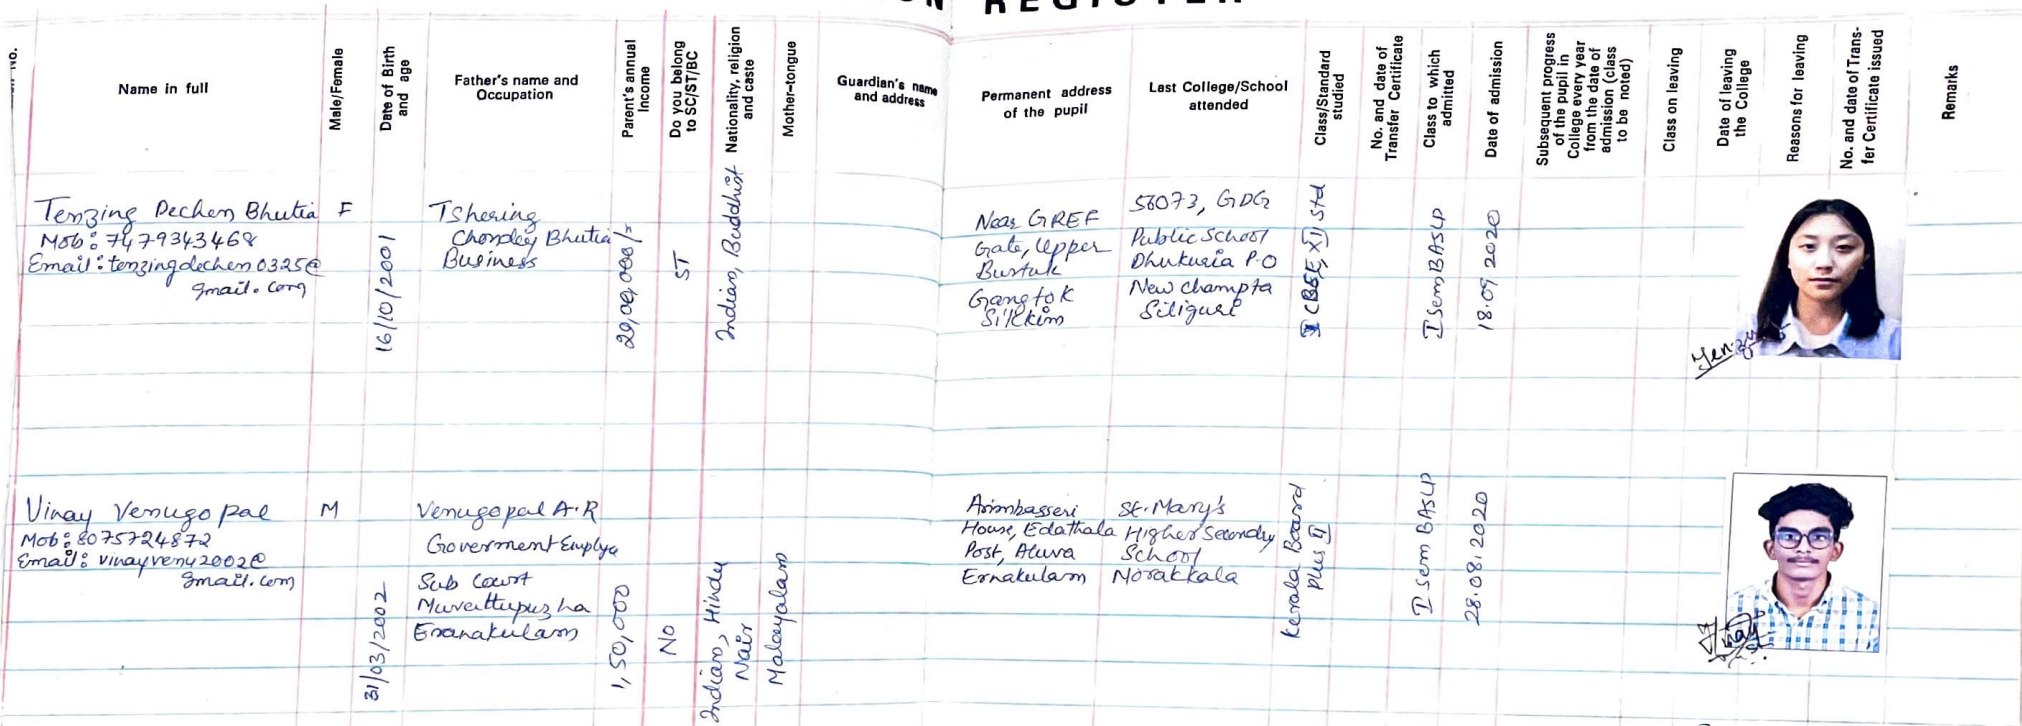 REGISTER
Name in full
Male/Female
Date of Birth and age
Father's name and Occupation
Parent's annual Income
Do you belong to SC/ST/BC
Nationality, religion and caste
Mother-tongue
Guardian's name and address
Permanent address of the pupil
Last College/School attended
Class/Standard studied
No. and date of Transfer Certificate
Class to which admitted
Date of admission
Subsequent progress of the pupil in College every year from the date of admission (class to be noted)
Class on leaving
Date of leaving the College
Reasons for leaving
No. and date of Trans- fer Certificate issued
Remarks
Tenzing Dechen Bhutia
Mob: 7479343468
Email: tenzingdechen0325@
gmail.com
F
16/10/2001
Tshering
Bhutia
Business
ST
Indian, Buddhist
Near GREF
Gate, Upper
Burtuk
Gangtok
Sikkim
56073, GDG
Public School
Dhukuria P.O
New Champta
Siliguri
CBSE, XII Std
I Sem BASLP
18.09.2020
Vinay Venugopal
Mob: 8075724872
Email: vinayvenu2002@
gmail.com
M
31/03/2002
Venugopal A.R
Goverment Employe
Sub Court
Muvattupuzha
Eranakulam
1,50,000
NO
Indian, Hindu
Nair
Malayalam
Arimbasseri
House, Edathala
Post, Aluva
Ernakulam
St. Mary's
Higher Secondry
School
Morakkala
Kerala Board
Plus II
I Sem BASLP
28.08.2020